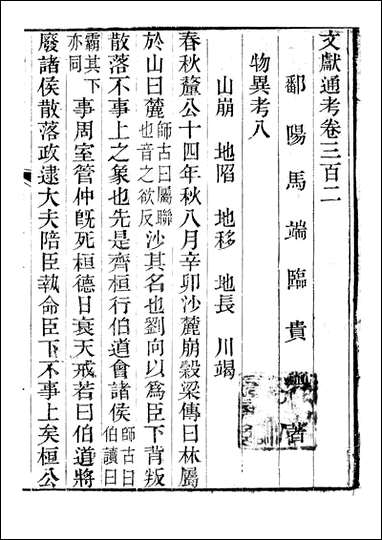 文獻通考卷三百二
鄱陽馬端臨貴與著
物異考八
山崩 地陷 地移 地長 川竭
春秋釐公十四年秋八月辛卯沙麓崩穀梁傳曰林屬
於山曰麓師古曰屬聯也音之欲反沙其名也劉向以為臣下背叛
散落不事上之象也先是齊桓行伯道會諸侯師古曰伯讀曰
霸其下亦同事周室管仲既死桓德日衰天戒若曰伯道將
廢諸侯散落政逮大夫陪臣執命臣下不事上矣桓公